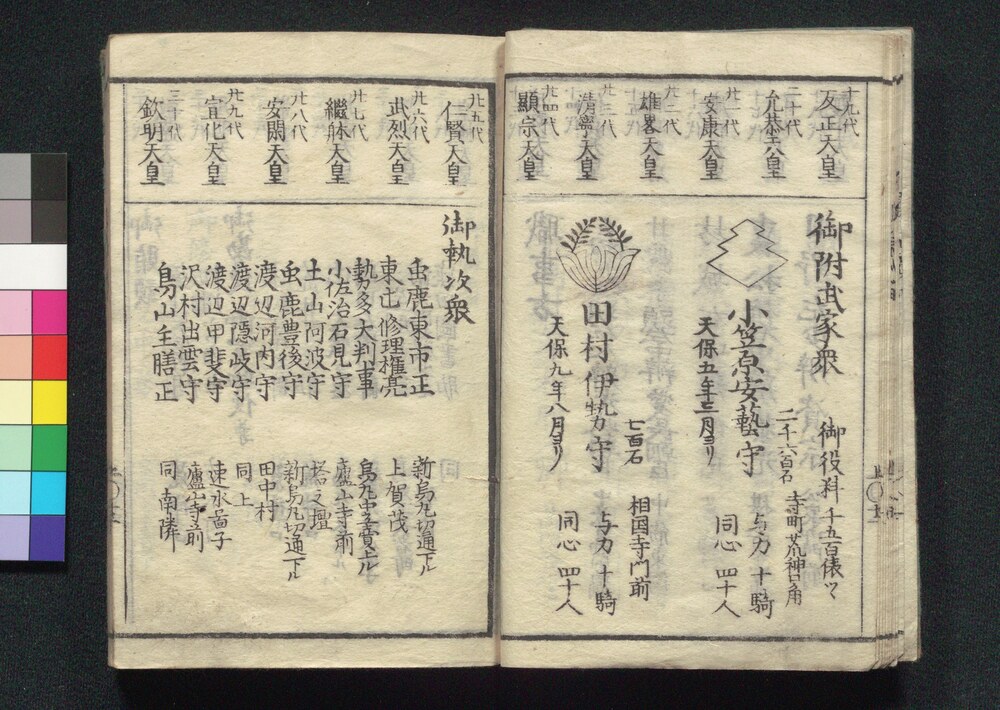 十九代
反正天皇
二十代
允恭天皇
廿一代
安康天皇
廿二代
雄畧天皇
廿三代
清寧天皇
廿四代
顯宗天皇
御附武家衆
御役料千五百俵ツヽ
二千六百石 寺町荒神口角
小笠原安藝守
与力十騎
天保五年三月ヨリ
同心四十人
七百石 相国寺門前
田村伊勢守
与力十騎
天保九年八月ヨリ
同心四十人
廿五代
仁賢天皇
廿六代
武烈天皇
廿七代
繼躰天皇
廿八代
安閑天皇
廿九代
宣化天皇
三十代
欽明天皇
御執次衆
虫鹿東市正 新烏丸切通下ル
東辻修理權亮 上賀茂
勢多大判事 烏丸中立賣上ル
小佐治石見守 廬山寺前
土山阿波守 塔之壇
虫鹿豊後守 新烏丸切通下ル
渡辺河内守 田中村
渡辺隠岐守 同上
渡辺甲斐守 速水啚子
沢村出雲守 廬山寺前
鳥山主膳正 同南隣